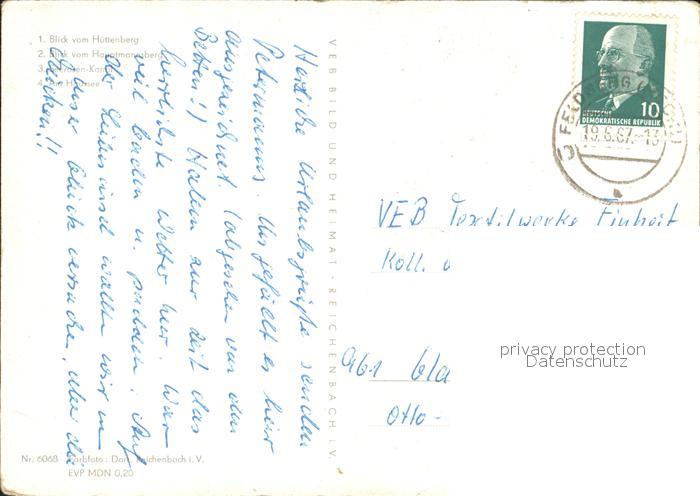 1. Blick vom Hüttenberg
2. Blick vom Hauptmannsberg
3.
4. Am Haussee
Herzliche Urlaubsgrüße senden
Petermanns. Uns gefällt es hier
ausgezeichnet. (abgesehen von den
Betten!) Haben zur Zeit das
herrlichste Wetter hier. War
viel baden u. paddeln. Auf
der wollten wir
unser Glück versuchen, aber die
!!
VEB BILD UND HEIMAT · REICHENBACH i. V.
DEUTSCHE
DEMOKRATISCHE REPUBLIK
10
FELDBERG (MECKL)
19.6.67.-13
VEB Textilwerke Einheit
Koll.
961
Otto-
privacy protection
Datenschutz
Nr. 6068 Farbfoto: Darr, Reichenbach i. V.
EVP MDN 0,20